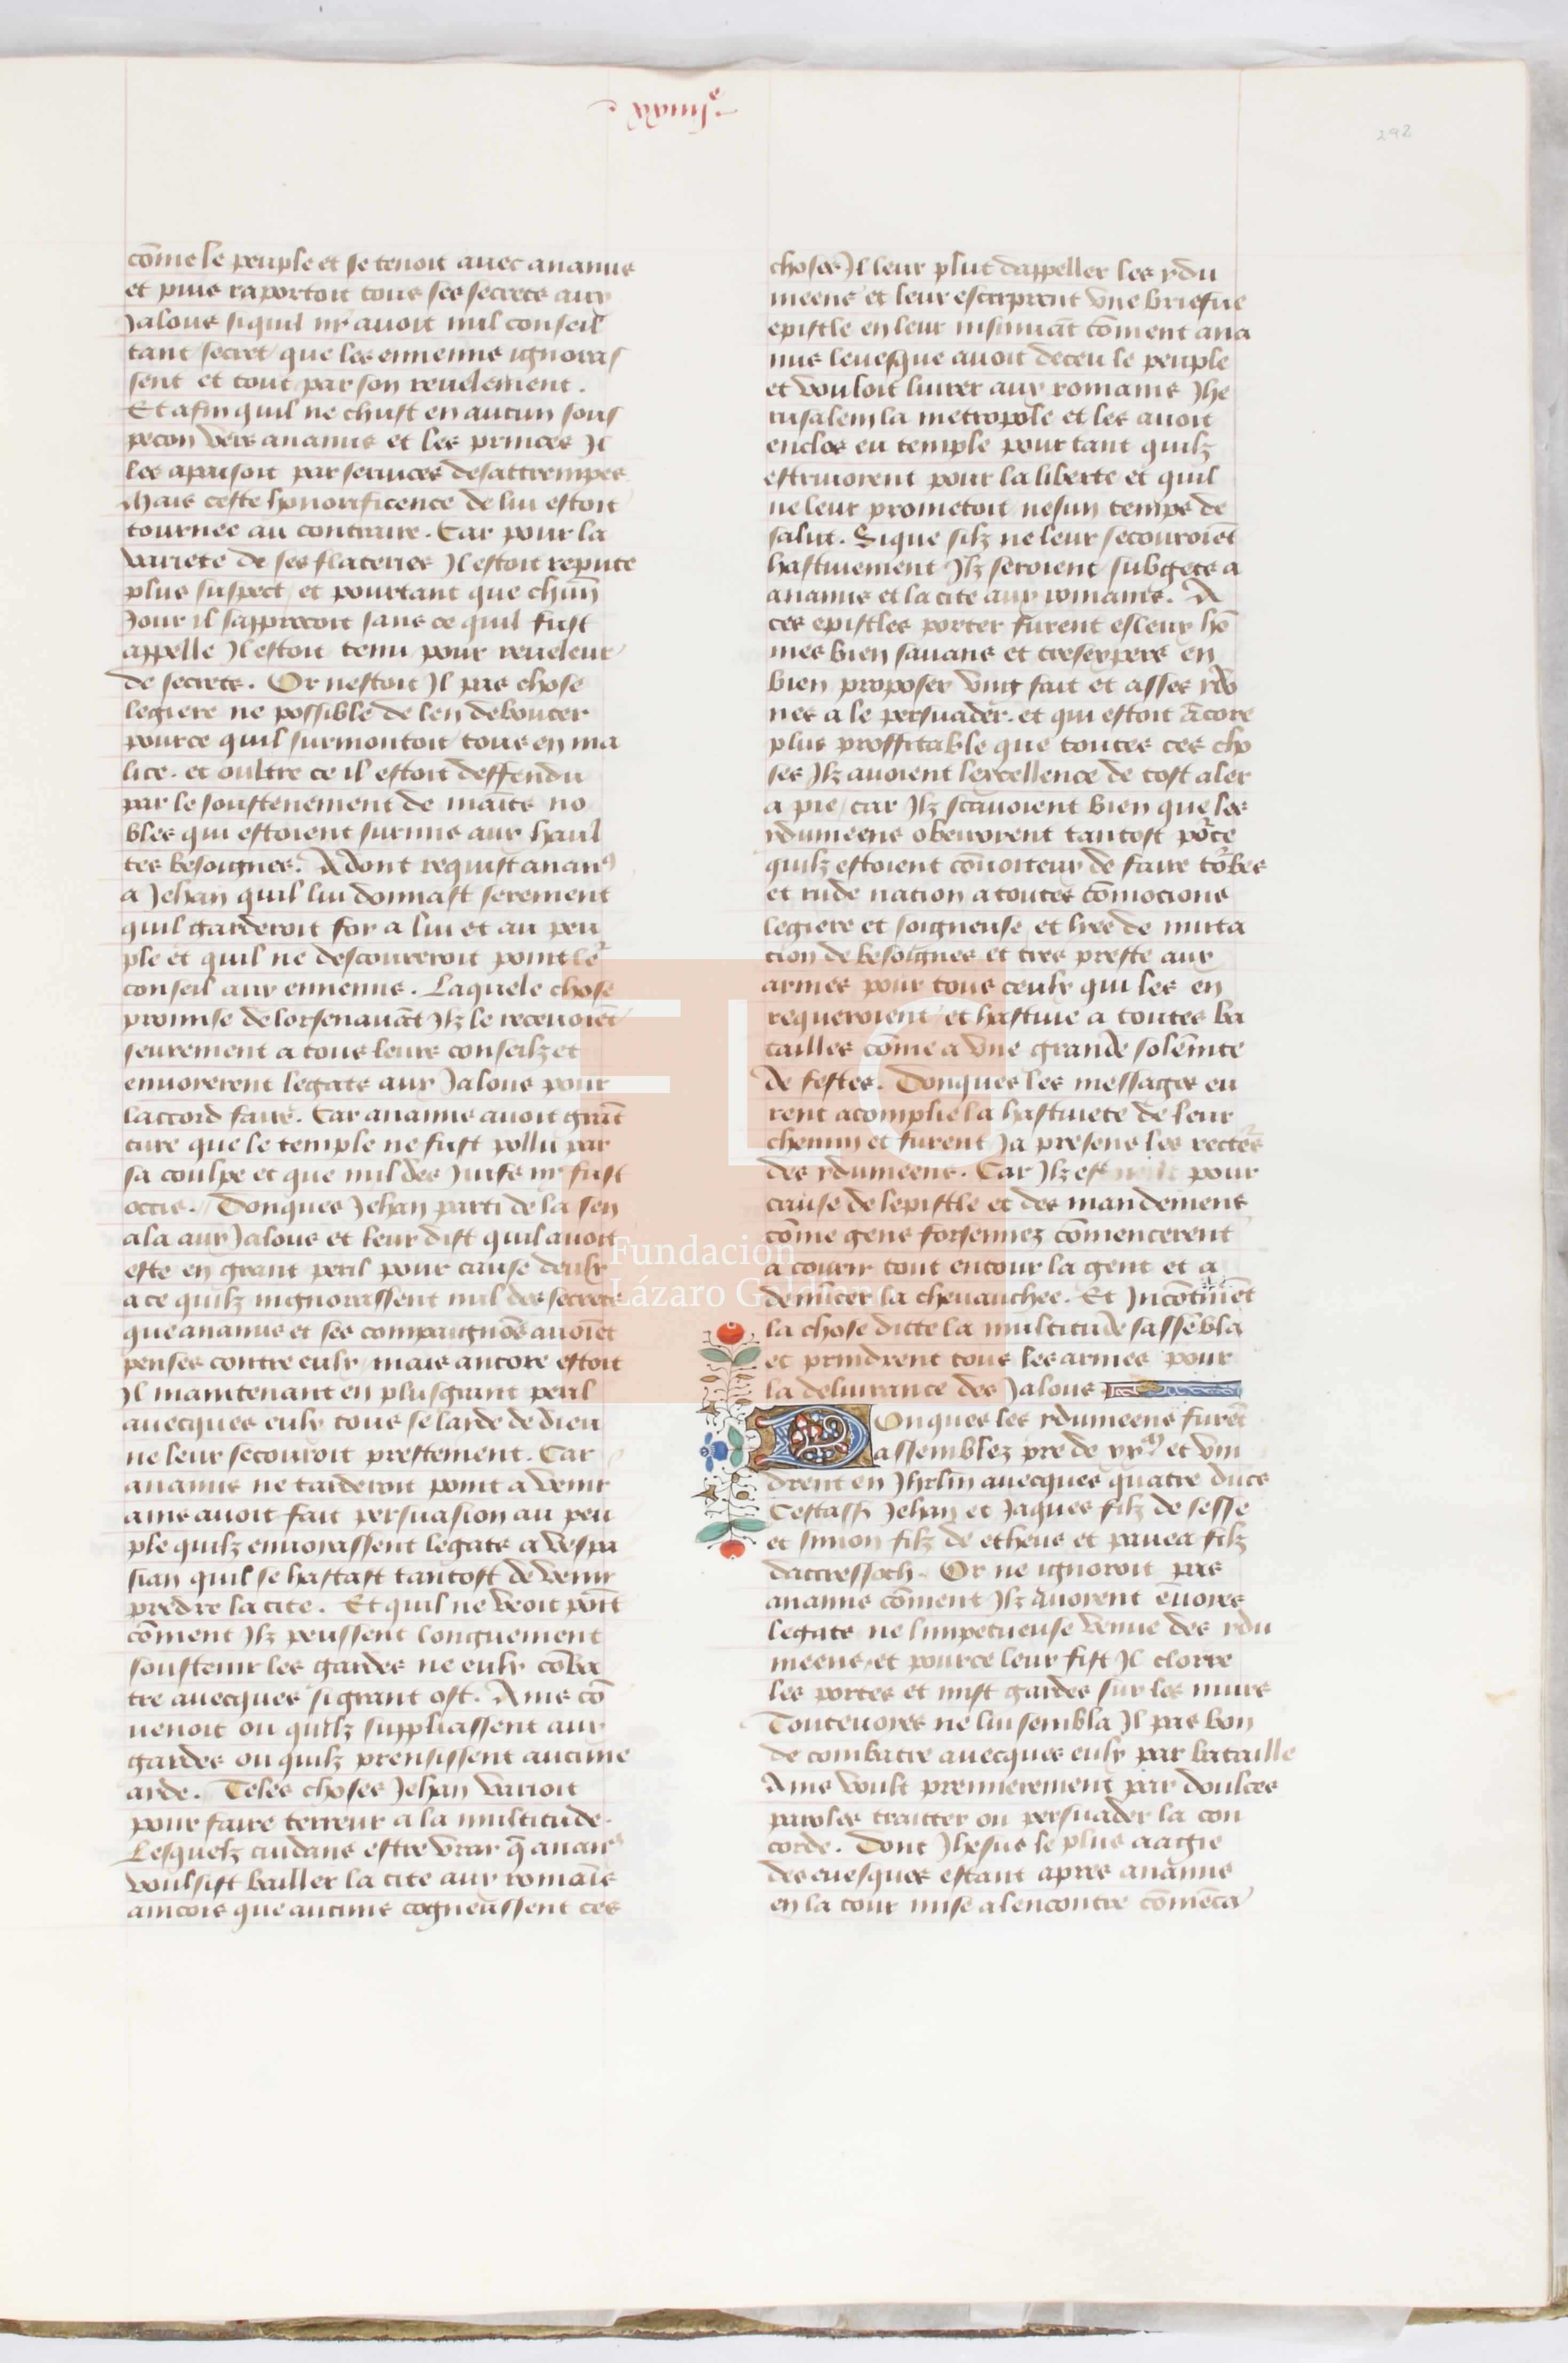 292
cōme le peuple et se tenoit auec ananus
et puis raportoit tous ses secrets aux
Jalous si quil ny auoit nul conseil
tant secret que les ennemis ignoras
sent et tout par son reuelement.
Et afin quil ne chust en aucun sous
pecon vers ananus et les princes Il
les apaisoit par seruices desattrempes
Mais ceste honorificence de lui estoit
tournee au contraire. Car pour la
variete de ses flateries Il estoit repute
plus suspect et pourtant que chūn
Jour il sapprocoit sans ce quil fust
appelle Il estoit tenu pour reueleur
de secrets. Or nestoit Il pas chose
legiere ne possible de len debouter
pource quil surmontoit tous en ma
lice. et oultre ce il estoit deffendu
par le soustenement de maīts no
bles qui estoient surmis aux haul
tes besoignes. Adont requist anan9
a Jehan quil lui donnast serement
quil garderoit foy a lui et au peu
ple et quil ne descouureroit point le'
conseil aux ennemis. Laquele chose
promise delorsenauāt Ilz le receuoiēt
seurement a tous leurs conseilz et
enuoierent legats aux Jalous pour
laccord faire. Car ananus auoit grāt
cure que le temple ne fust pollu par
sa coulpe et que nul des Juifs ny fust
occis. Donques Jehan parti de la sen
ala aux Jalous et leur dist quil auoit
este en grant peril pour cause deulx
a ce quilz nignorassent nul des secrets
que ananus et ses compaignōs auoiēt
penses contre eulx mais ancore estoit
Il maintenant en plus grant peril
auecques eulx tous se larde de dieu
ne leur secouroit prestement. Car
ananus ne tarderoit point a venir
ains auoit fait persuasion au peu
ple quilz enuoiassent legats a vespa
sian quil se hastast tantost de venir
prēdre la cite. Et quil ne veoit poīt
cōment Ilz peussent longuement
soustenir les gardes ne eulx cōba
tre auecques si grant ost. Ains cō
uenoit ou quilz suppliassent aux
gardes ou quilz prensissent aucune
arde. Teles choses Jehan varioit
pour faire terreur a la multitude.
Lesquelz cuidans estre vray q̄ anan9
voulsist bailler la cite aux romaīs
aincois que aucuns cogneussent ces
choses Il leur plut dappeller les ydu
meens et leur escriprent vne briefue
epistle en leur insinuāt cōment ana
nus leuesque auoit deceu le peuple
et vouloit liurer aux romains Jhe
rusalem la metropole et les auoit
enclos eu temple pour tant quilz
estriuoient pour la liberte et quil
ne leur prometoit nesun temps de
salut. Si que silz ne leur secouroiēt
hastiuement Ilz seroient subgets a
ananus et la cite aux romains. A
ces epistles porter furent esleux hō
mes bien sauans et tres expers en
bien proposer vng fait et asses ydo
nes a le persuader. et qui estoit ācore
plus proffitable que toutes ces cho
ses Ilz auoient lexcellence de tost aler
a pie car Ilz scauoient bien que les
ydumeens obeiroient tantost pōce
quilz estoient cōuoiteux de faire tōbes
et rude nation a toutes cōmocions
legiere et soigneuse et liee de muta
cion de besoignes et tres preste aux
armes pour tous ceulx qui les en
requeroient et hastiue a toutes ba
tailles cōme a vne grande solēnite
de festes. Donques les messages eu
rent acomplie la hastiuete de leur
chemin et furent Ja presens les recteurs
des ydumeens. Car Ilz pour
cause de lepistle et des mandemens
cōme gens forsennez cōmencerent
a courir tout entour la gent et a
denucer la cheuauchee. Et Jncōtinēt
la chose dicte la multitude sassēbla
et prindrent tous les armes pour
la deliurance des Jalous
Donques les ydumeens furēt
assemblez pre de xxM et vin
drent en Jhrlm̄ auecques quatre ducs
Cestass Jehan et Jaques filz de sesse
et simon filz de etheus et pauea filz
daccressoch. Or ne ignoroit pas
ananus cōment Ilz auoient ēuoies
legats ne limpetueuse venue des ydu
meens. et pource leur fist Il clorre
les portes et mist gardes sur les murs
Touteuoies ne lui sembla Il pas bon
de combatre auecques eulx par bataille
Ains voult premierement par doulces
paroles traitter ou persuader la con
corde. Dont Jhesus le plus aagie
des euesques estant apres ananus
en la tour mise alencontre cōmēca
Fundación
Lázaro Galdiano